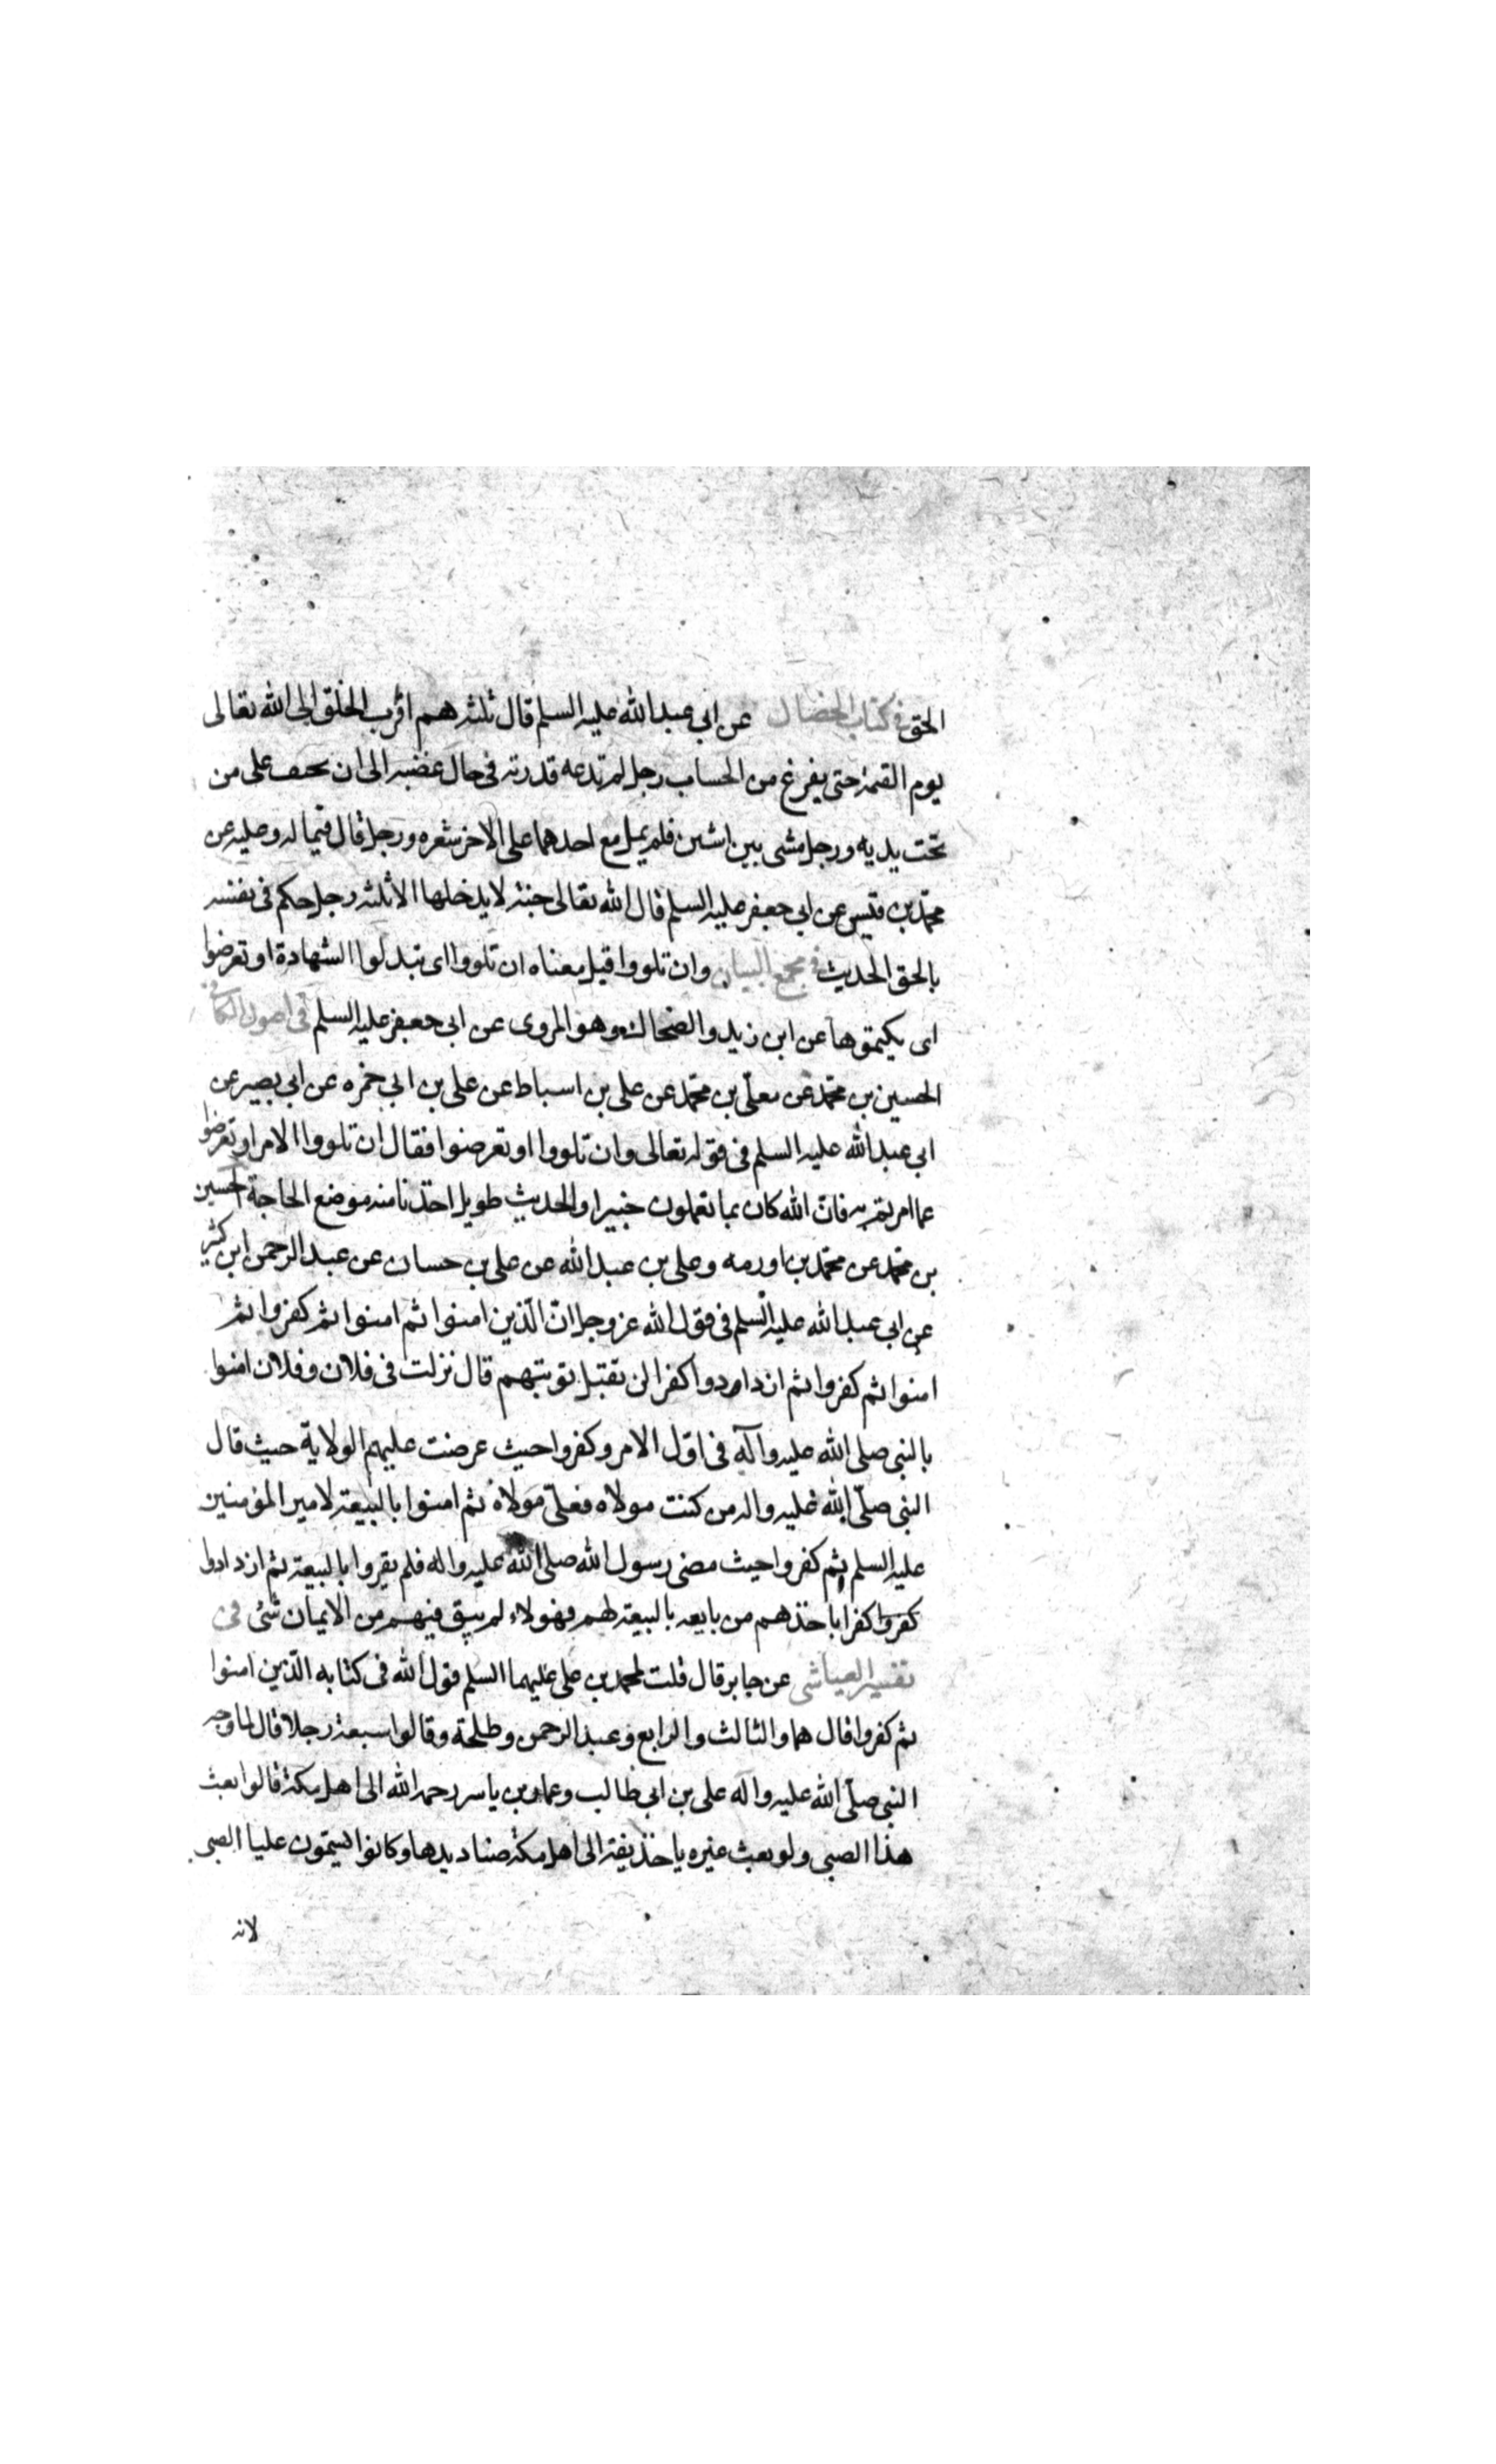 الحق في كتاب الخصال عن ابي عبد الله عليه السلم قال ثلثة هم اقرب الخلق الى الله تعالى
يوم القيمة حتى يفرغ من الحساب رجل لم تدعه قدرته في حال غضبه الى ان يحيف على من
تحت يديه ورجل مشى بين اثنين فلم يمل مع احدهما على الاخر بشعره ورجل قال فيما له وعليه عن
محمد بن قيس عن ابي جعفر عليه السلم قال الله تعالى جنة لا يدخلها الا ثلثة رجل حكم في نفسه
بالحق الحديث في مجمع البيان وان تلووا قيل معناه ان تلووا اى تبدلوا الشهادة او تعرضوا
اى يكتموها عن ابن زيد والضحاك وهو المروى عن ابي جعفر عليه السلم في اصول الكافي
الحسين بن محمد عن معلّى بن محمد عن على بن اسباط عن على بن ابي حمزه عن ابي بصير عن
ابي عبد الله عليه السلم في قوله تعالى وان تلووا او تعرضوا فقال ان تلووا الامر او تعرضوا
عما امرتم به فانّ الله كان بما تعملون خبيرا والحديث طويل اخذنا منه موضع الحاجة الحسين
بن محمد عن محمد بن اورمه وعلى بن عبد الله عن على بن حسان عن عبد الرحمن ابن كثير
عن ابي عبد الله عليه السلم في قول الله عز وجل انّ الّذين امنوا ثم امنوا ثم كفروا ثم
امنوا ثم كفروا ثم ازدادوا كفرا لن تقتبل توبتهم قال نزلت في فلان وفلان امنوا
بالنبي صلى الله عليه وآله في اوّل الامر وكفروا حيث عرضت عليهم الولاية حيث قال
النبي صلّى الله عليه واله من كنت مولاه فعلىّ مولاه ثم امنوا بالبيعة لامير المؤمنين
عليه السلم ثم كفروا حيث مضى رسول الله صلى الله عليه واله فلم يقروا بالبيعة ثم ازدادوا
كفروا كفرا باخذهم من بايعه بالبيعة لهم فهولاء لم يبق فيهم من الايمان شئ في
تفسير العياشي عن جابر قال قلت لمحمد بن على عليهما السلم قول الله في كتابه الّذين امنوا
ثم كفروا قال هما والثالث والرابع وعبد الرحمن وطلحة وقالوا سبعة رجلا قال لما وجه
النبي صلّى الله عليه وآله على بن ابي طالب وعمار بن ياسر رحمه الله الى اهل مكة قالوا بعث
هذا الصبي ولو بعث غيره يا حذيفة الى اهل مكة صناديدها وكانوا يسمون عليا الصبي
لانه